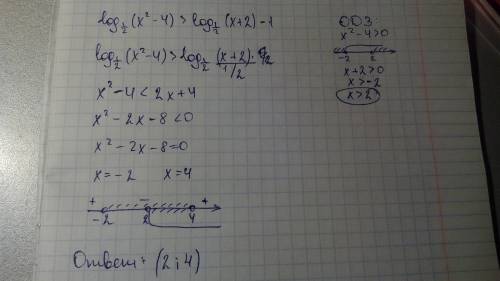 log½(x²-4) > log½(x+2)-1
log½(x²-4) > log½ (x+2)/(1/2)
x²-4 < 2x+4
x²-2x-8<0
x²-2x-8=0
x=-2 x=4
+ - +
-2 2 4
Ответ: (2;4)
ОДЗ:
x²-4>0
-2 2
x+2>0
x>-2
x>2